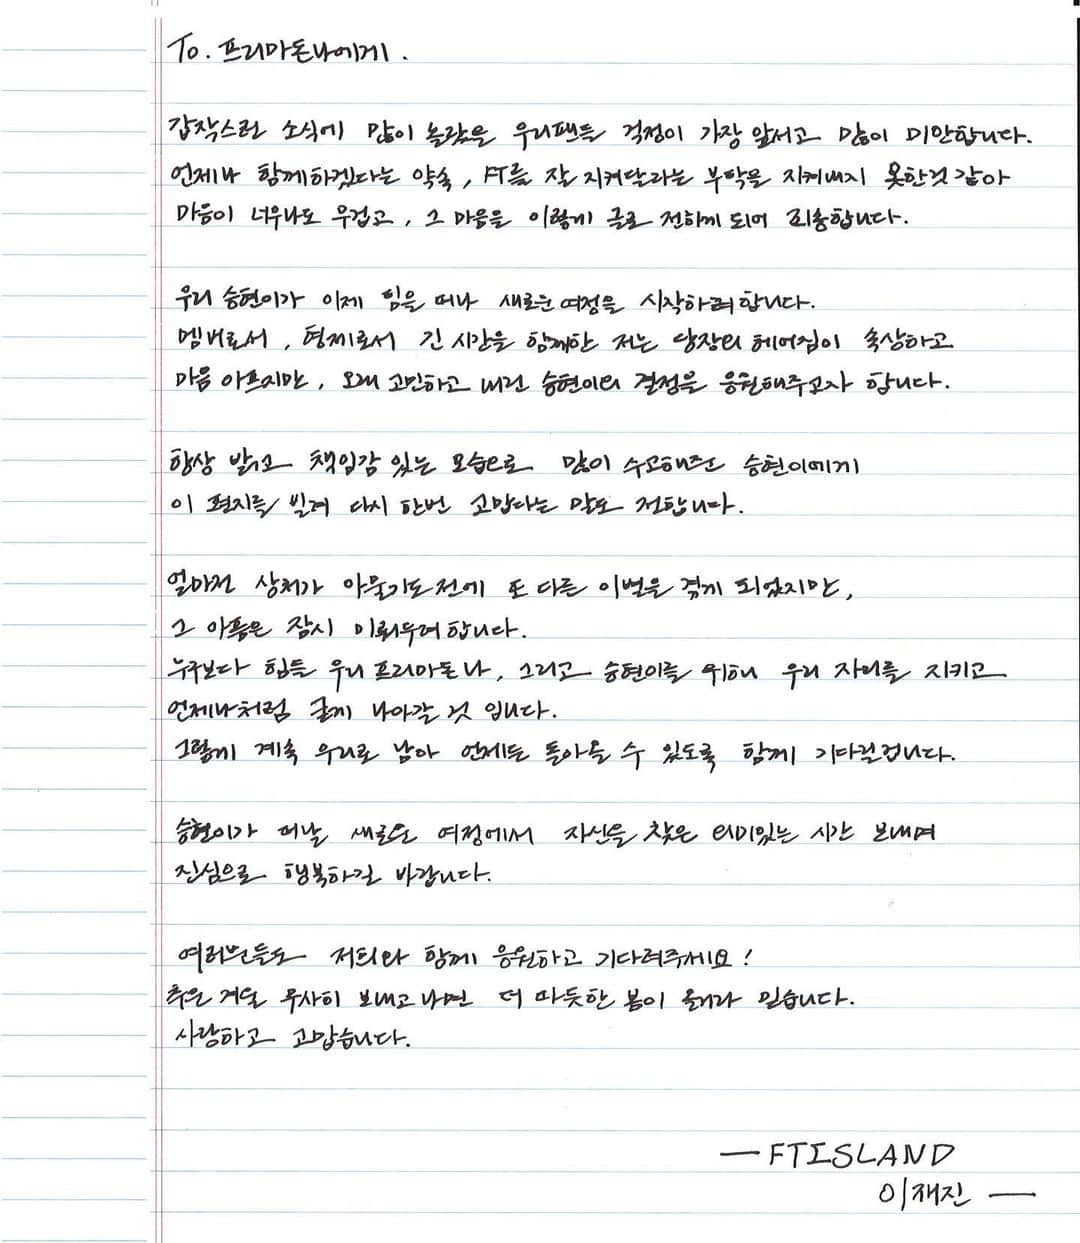 To. 프리마돈나에게.
갑작스런 소식에 많이 놀랐을 우리팬들 걱정이 가장 앞서고 많이 미안합니다.
언제나 함께하겠다는 약속, FT를 잘 지켜달라는 부탁을 지켜내지 못한것 같아
마음이 너무나도 무겁고, 그 마음을 이렇게 글로 전하게 되어 죄송합니다.
우리 승현이가 이제 팀을 떠나 새로운 여정을 시작하려 합니다.
멤버로서, 형제로서 긴 시간을 함께한 저는 당장의 헤어짐이 속상하고
마음 아프지만, 오래 고민하고 내린 승현이의 결정을 응원해주고자 합니다.
항상 밝고 책임감 있는 모습으로 많이 수고해준 승현이에게
이 편지를 빌려 다시 한번 고맙다는 말도 전합니다.
얼마전 상처가 아물기도 전에 또 다른 이별을 겪게 되었지만,
그 아픔은 잠시 미뤄두려 합니다.
누구보다 힘들 우리 프리마돈나, 그리고 승현이를 위해 우리 자리를 지키고
언제나처럼 굳게 나아갈 것 입니다.
그렇게 계속 우리로 남아 언제든 돌아올 수 있도록 함께 기다릴겁니다.
승현이가 떠날 새로운 여정에서 자신을 찾은 의미있는 시간 보내며
진심으로 행복하길 바랍니다.
여러분들도 저희와 함께 응원하고 기다려주세요!
추운 겨울 무사히 보내고 나면 더 따듯한 봄이 올거라 믿습니다.
사랑하고 고맙습니다.
— FTISLAND
이재진 —